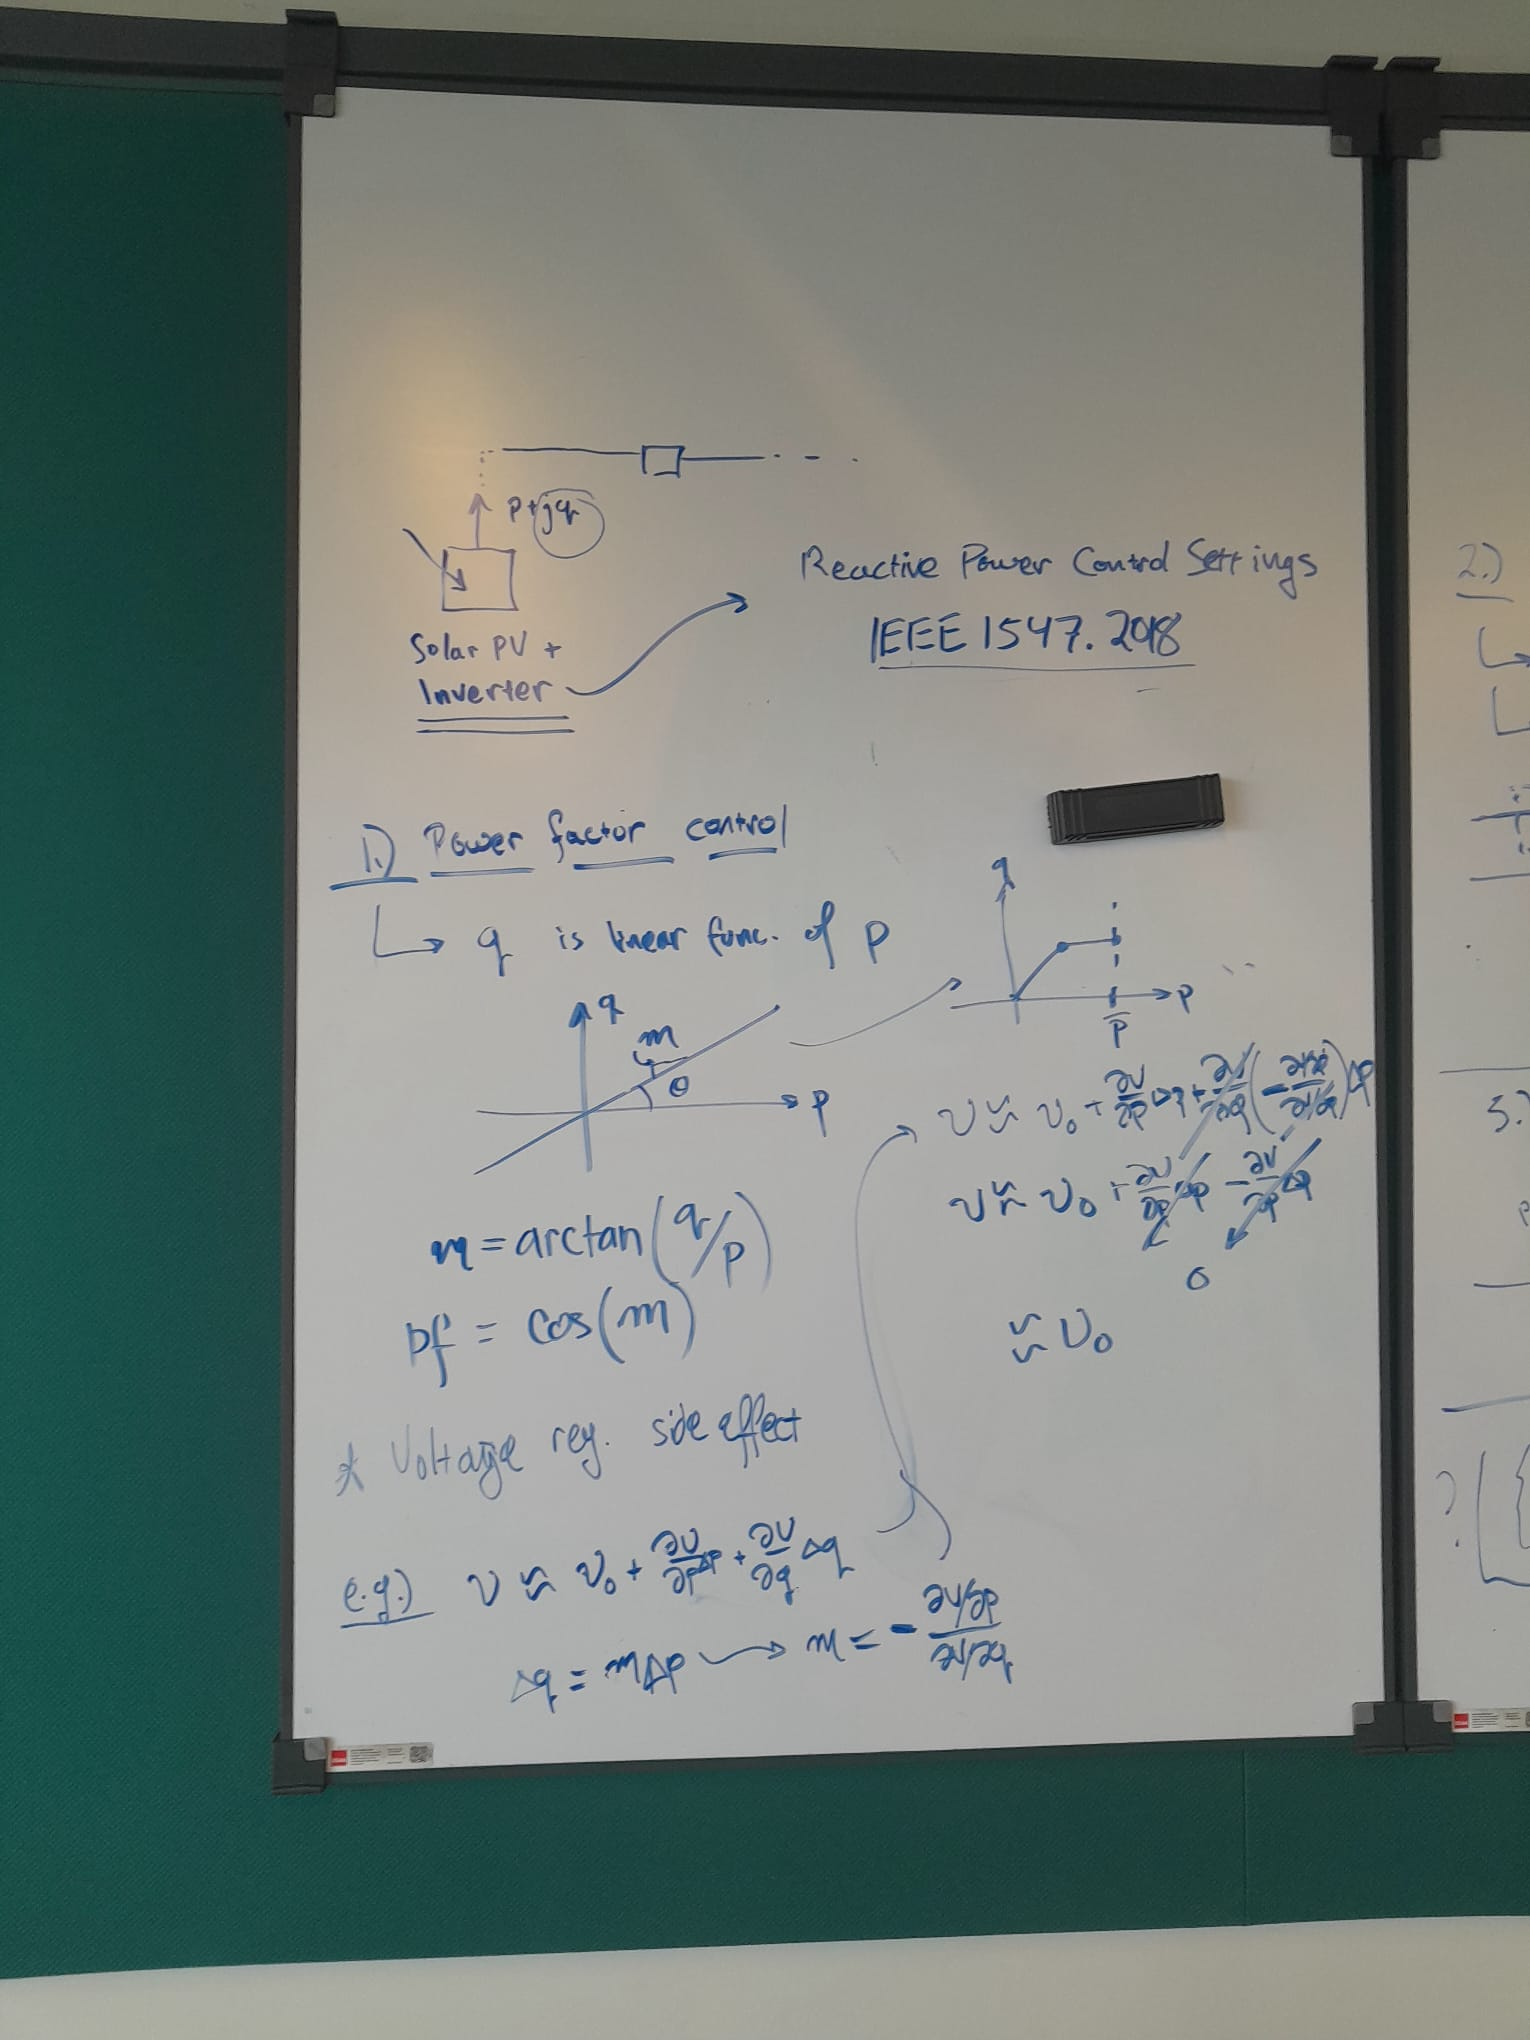 p+jq
Solar PV +
Inverter
Reactive Power Control Settings
IEEE 1547.2018
1.) Power factor control
↳ q is linear func. of p
q
m
θ
p
q
p
p̅
m = arctan(q/p)
pf = cos(m)
* Voltage reg. side effect
e.g.) v ≈ v₀ + ∂v/∂p Δp + ∂v/∂q Δq
Δq = mΔp → m = - (∂v/∂p)/(∂v/∂q)
v ≈ v₀ + ∂v/∂p Δp + ∂v/∂q (- (∂v/∂p)/(∂v/∂q)) Δp
v ≈ v₀ + ∂v/∂p Δp - ∂v/∂p Δp
0
≈ v₀
2.)